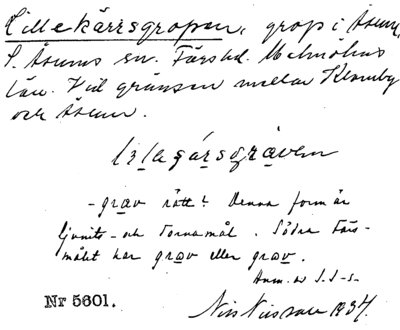 Lillekärrsgropen, grop i Åsum,
S. Åsums sn. Färs hd. Malmöhus
län. Vid gränsen mellan Klamby
och Åsum.
lɪlagársgraven
-grav rätt? Denna form är
ljunits- och Tornamål. Södra Färs-
målet har grov eller grav.
Anm. av I. I-s.
Nr 5601.
Nils Nilsson 1934.